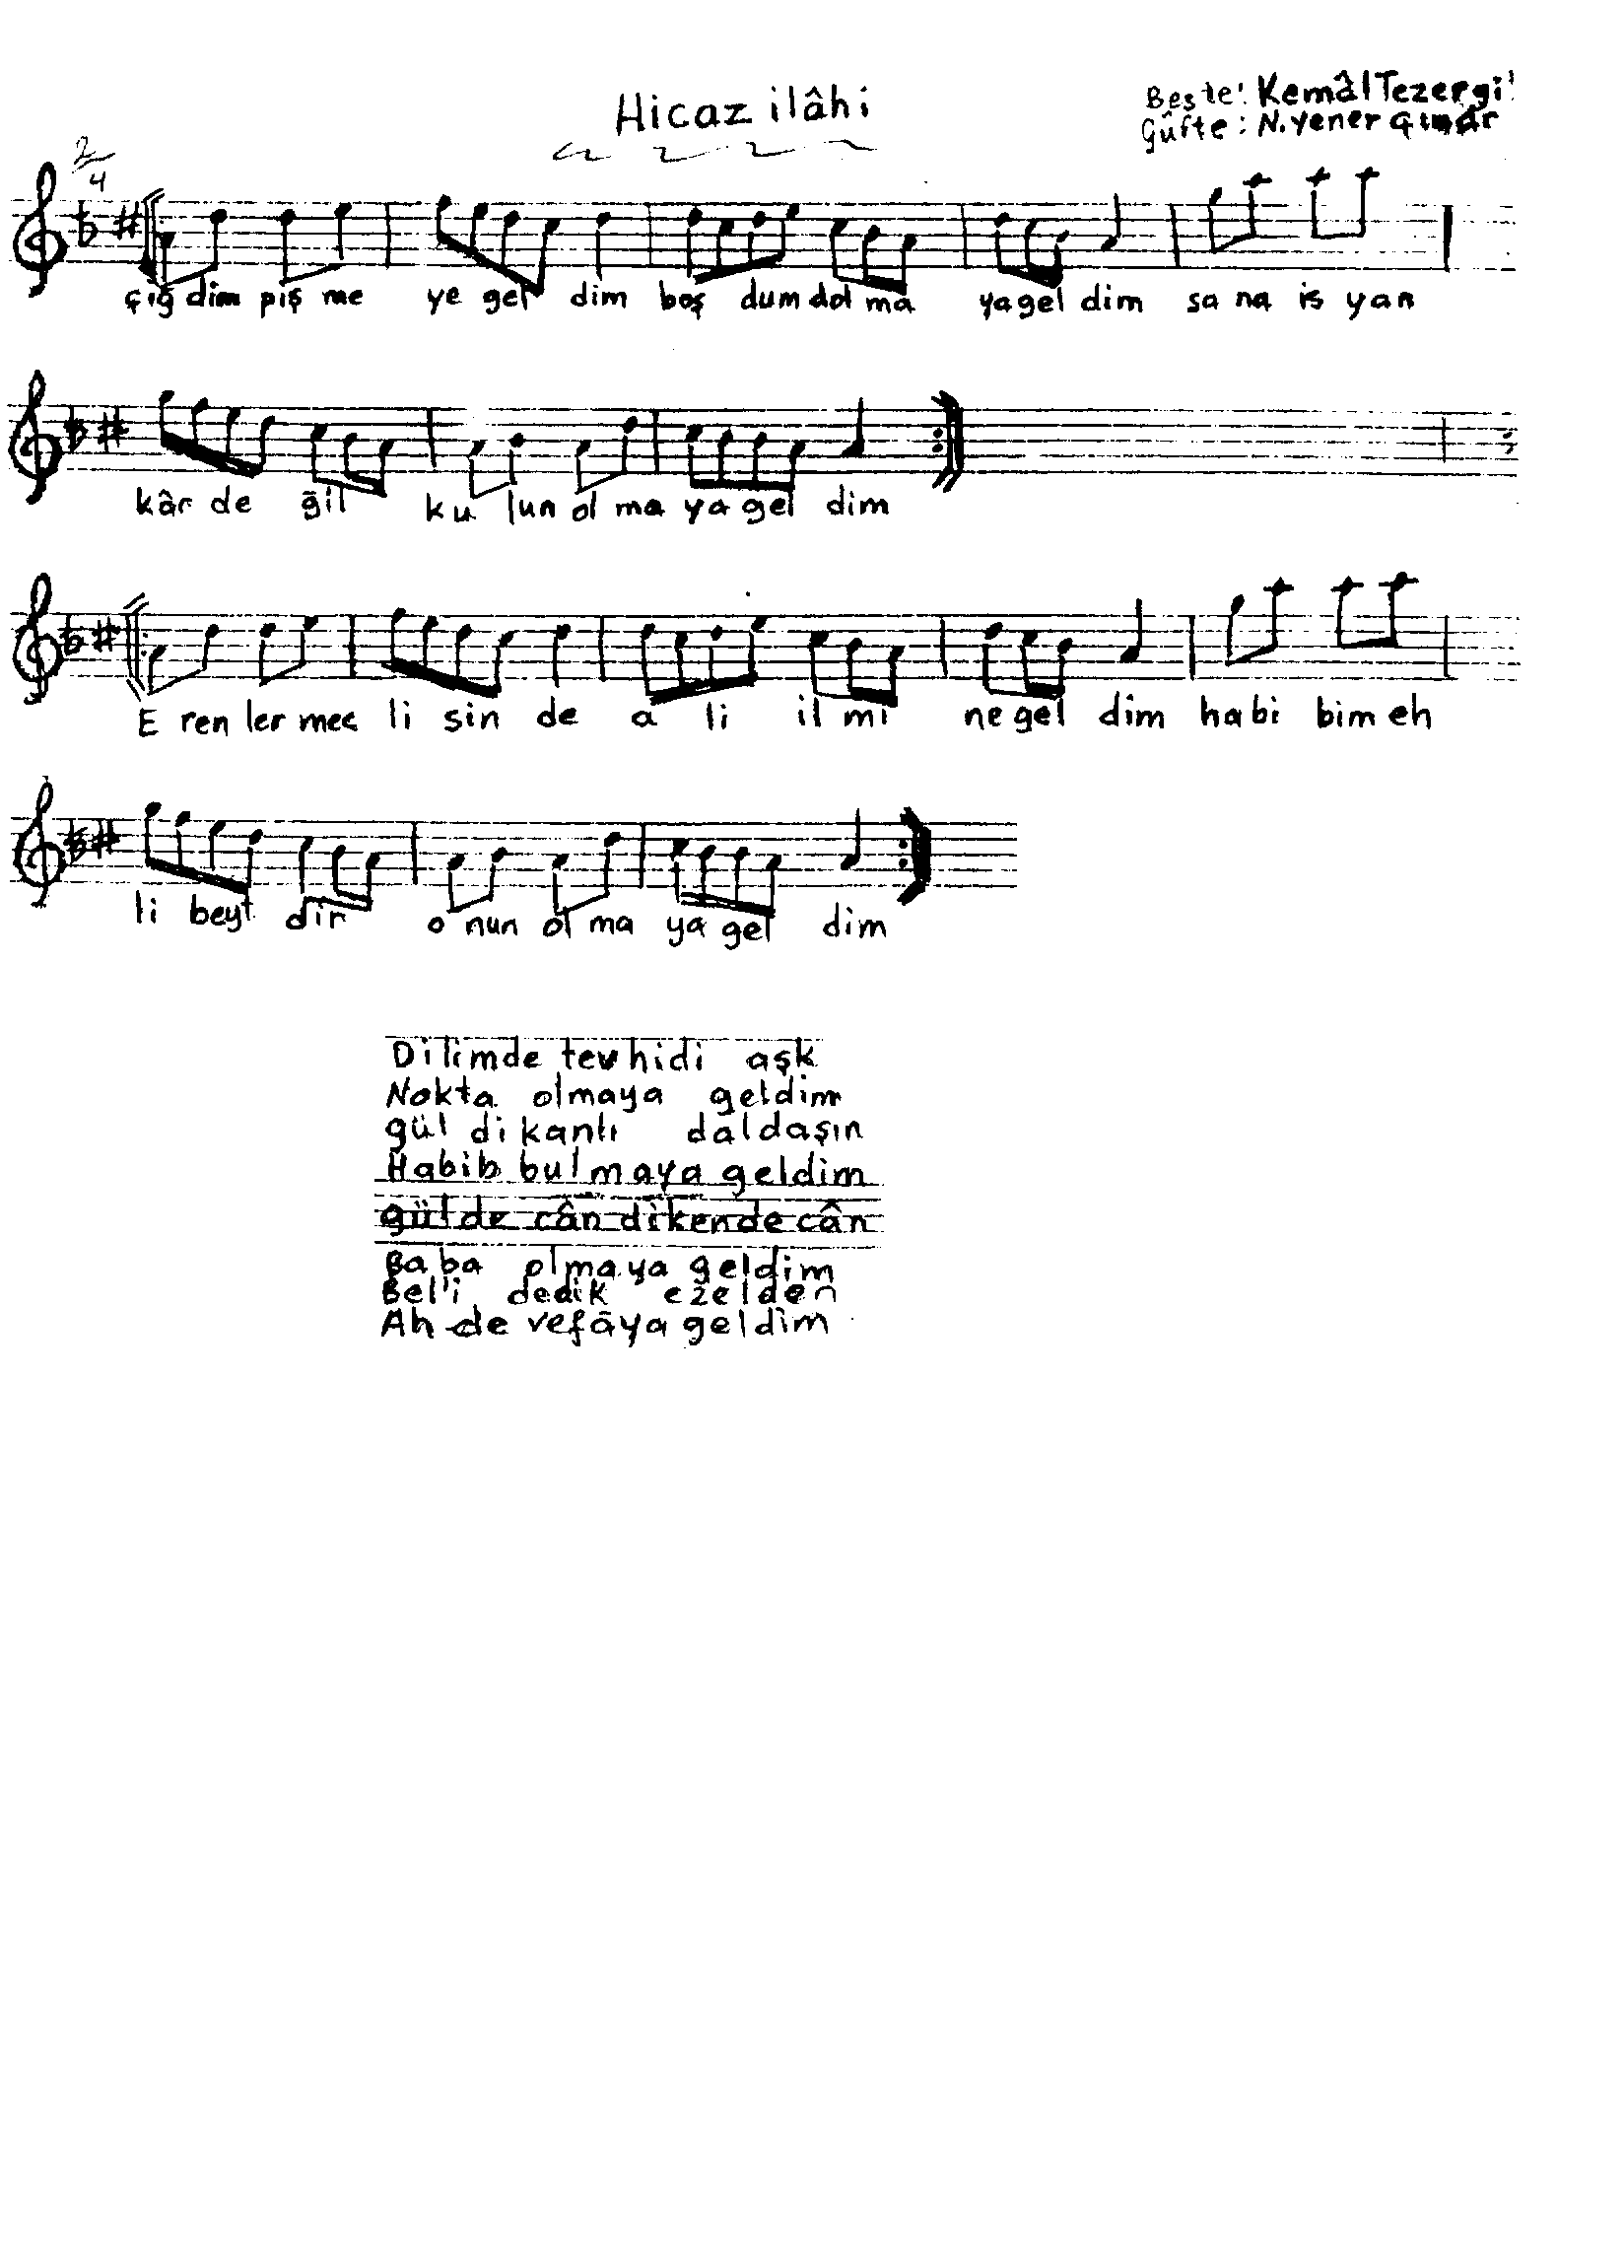 Hicaz ilâhi
Beste: Kemâl Tezergil
Güfte: N. Yener
2/4
çiğ dim piş me ye gel dim boş dum dol ma ya gel dim sa na is yan
kâr de ğil ku lun ol ma ya gel dim
E ren ler mec li sin de a li il mi ne gel dim ha bi bim eh
li beyt dir o nun ol ma ya gel dim
Dilimde tevhidi aşk
Nokta olmaya geldim
gül dikanlı daldaşın
Habib bulmaya geldim
gülde cân dikende cân
Baba olmaya geldim
Bel'i dedik ezelden
Ah de vefâya geldim